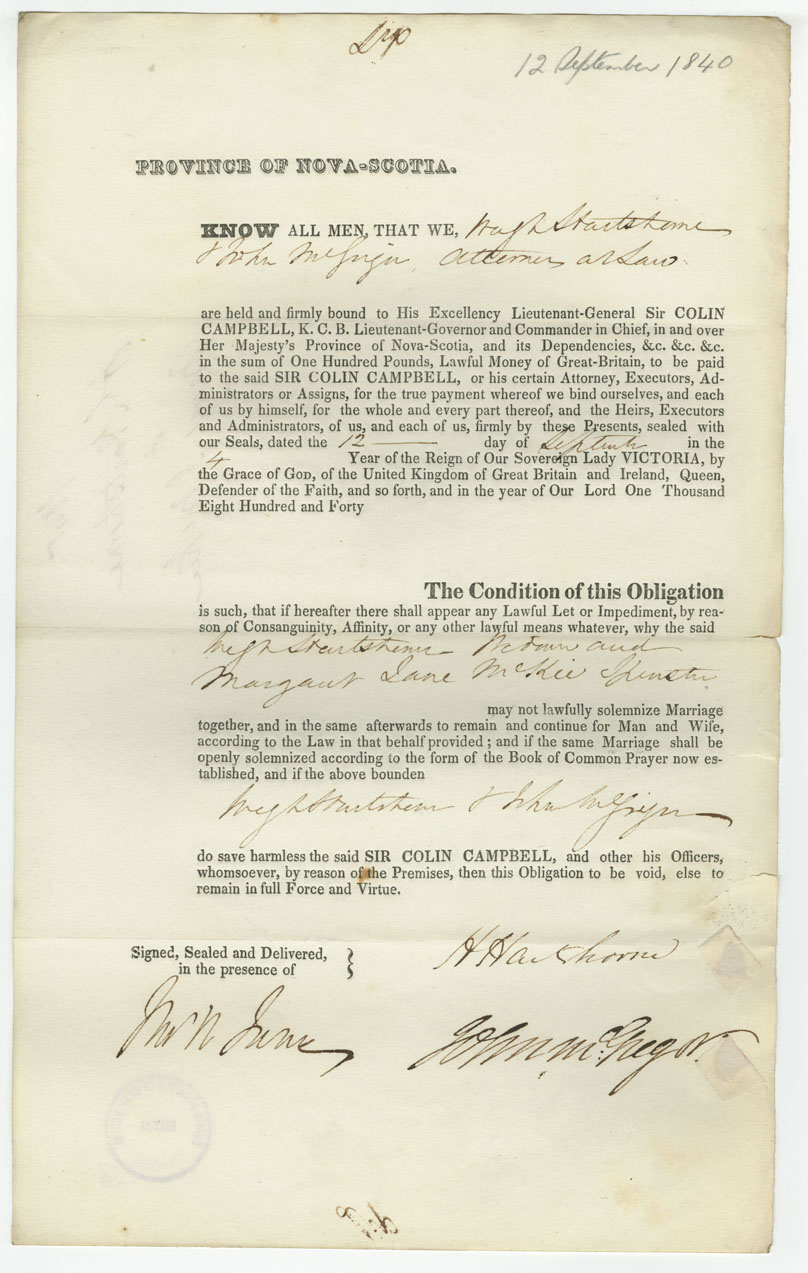 12 September 1840
PROVINCE OF NOVA-SCOTIA.
KNOW ALL MEN, THAT WE, Hugh Hartshorne
& John McGregor Attorney at Law
are held and firmly bound to His Excellency Lieutenant-General Sir COLIN
CAMPBELL, K. C. B. Lieutenant-Governor and Commander in Chief, in and over
Her Majesty's Province of Nova-Scotia, and its Dependencies, &c. &c. &c.
in the sum of One Hundred Pounds, Lawful Money of Great-Britain, to be paid
to the said SIR COLIN CAMPBELL, or his certain Attorney, Executors, Ad-
ministrators or Assigns, for the true payment whereof we bind ourselves, and each
of us by himself, for the whole and every part thereof, and the Heirs, Executors
and Administrators, of us, and each of us, firmly by these Presents, sealed with
our Seals, dated the 12 day of September in the
4 Year of the Reign of Our Sovereign Lady VICTORIA, by
the Grace of GOD, of the United Kingdom of Great Britain and Ireland, Queen,
Defender of the Faith, and so forth, and in the year of Our Lord One Thousand
Eight Hundred and Forty
The Condition of this Obligation
is such, that if hereafter there shall appear any Lawful Let or Impediment, by rea-
son of Consanguinity, Affinity, or any other lawful means whatever, why the said
Hugh Hartshorne Widower and
Margaret Jane McKie Spinster
may not lawfully solemnize Marriage
together, and in the same afterwards to remain and continue for Man and Wife,
according to the Law in that behalf provided ; and if the same Marriage shall be
openly solemnized according to the form of the Book of Common Prayer now es-
tablished, and if the above bounden
Hugh Hartshorne & John McGregor
do save harmless the said SIR COLIN CAMPBELL, and other his Officers,
whomsoever, by reason of the Premises, then this Obligation to be void, else to
remain in full Force and Virtue.
Signed, Sealed and Delivered,
in the presence of
H Hartshorne
John McGregor